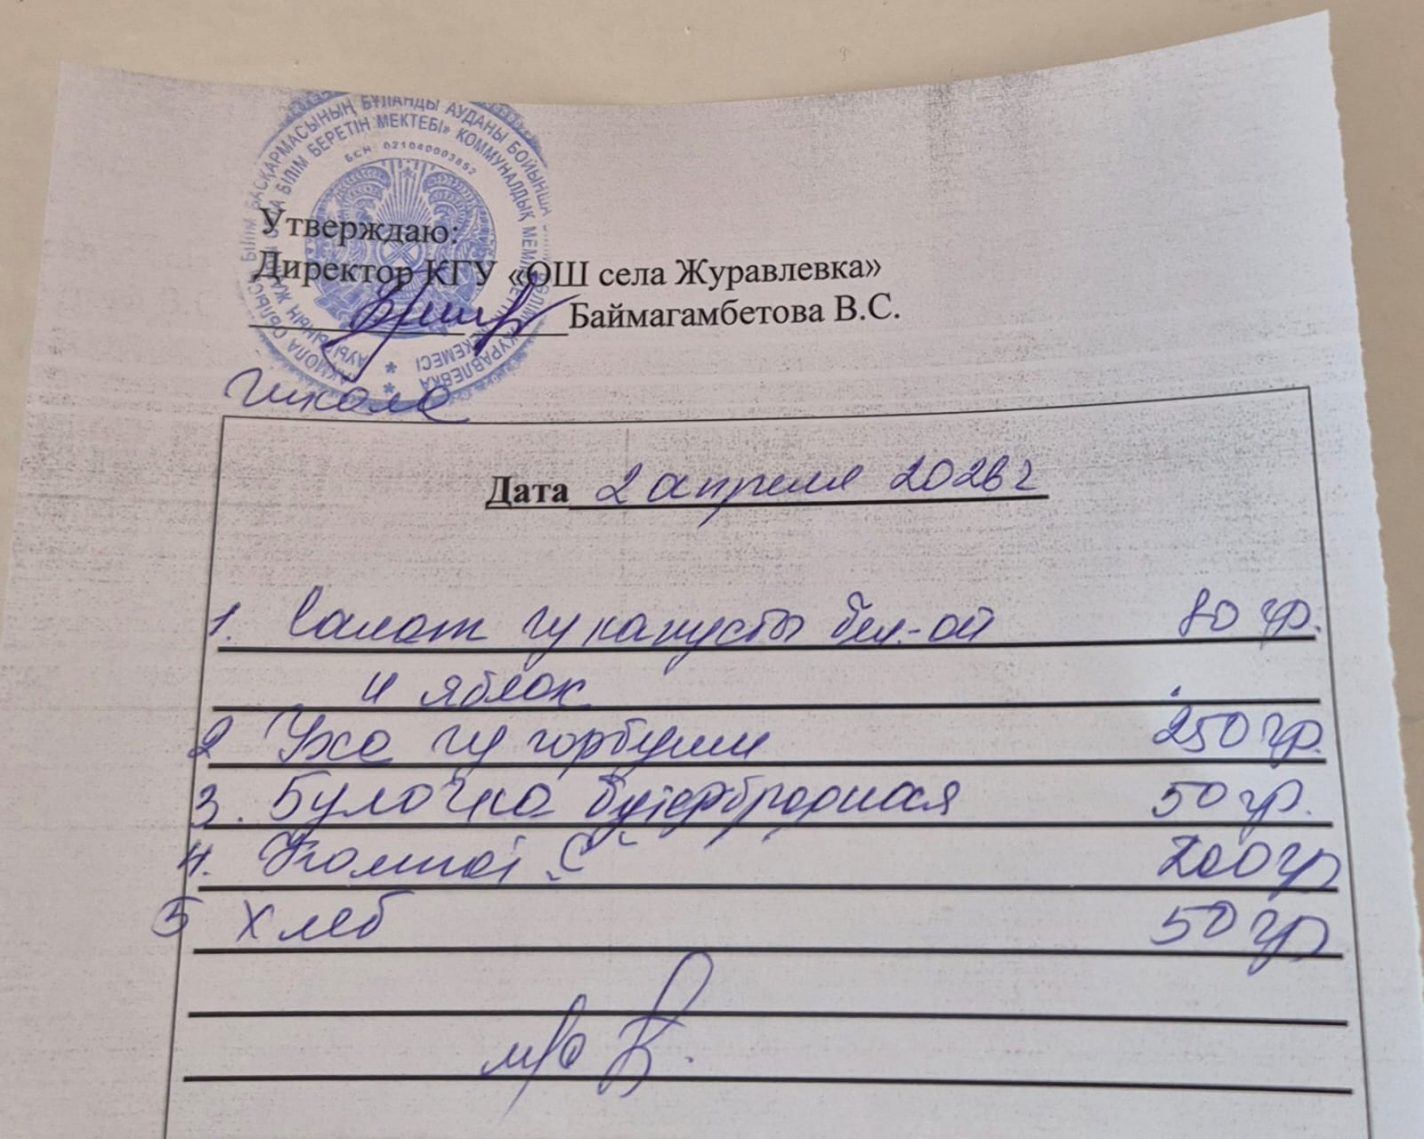 БІЛІМ БАСҚАРМАСЫНЫҢ БҰЛАНДЫ АУДАНЫ БОЙЫНША
БІЛІМ БЕРЕТІН МЕКТЕБІ» КОММУНАЛДЫҚ
БСН 021040003852
Утверждаю:
Директор КГУ «ОШ села Журавлевка»
Баймагамбетова В.С.
Школа
Дата 2 апреля 2026 г
1. Салат из капусты бел-ой 80 гр.
и яблок
2 Уха из горбуши 250 гр.
3. Булочка бутербродная 50 гр.
4. Компот "С" 200 гр
5 Хлеб 50 гр
м/с